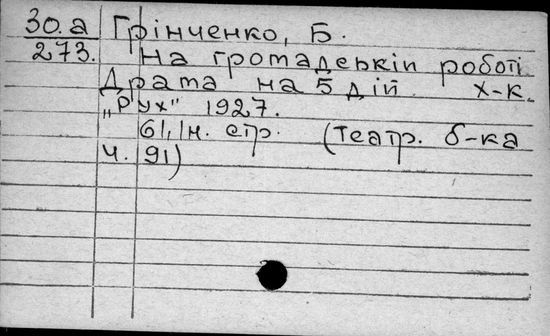 30.а Грінченко, Б.
273. На громадській роботі
Драма на 5 дій. Х-к.
„Рух" 1927.
61,1н. стр. (Театр. б-ка
Ч. 91)